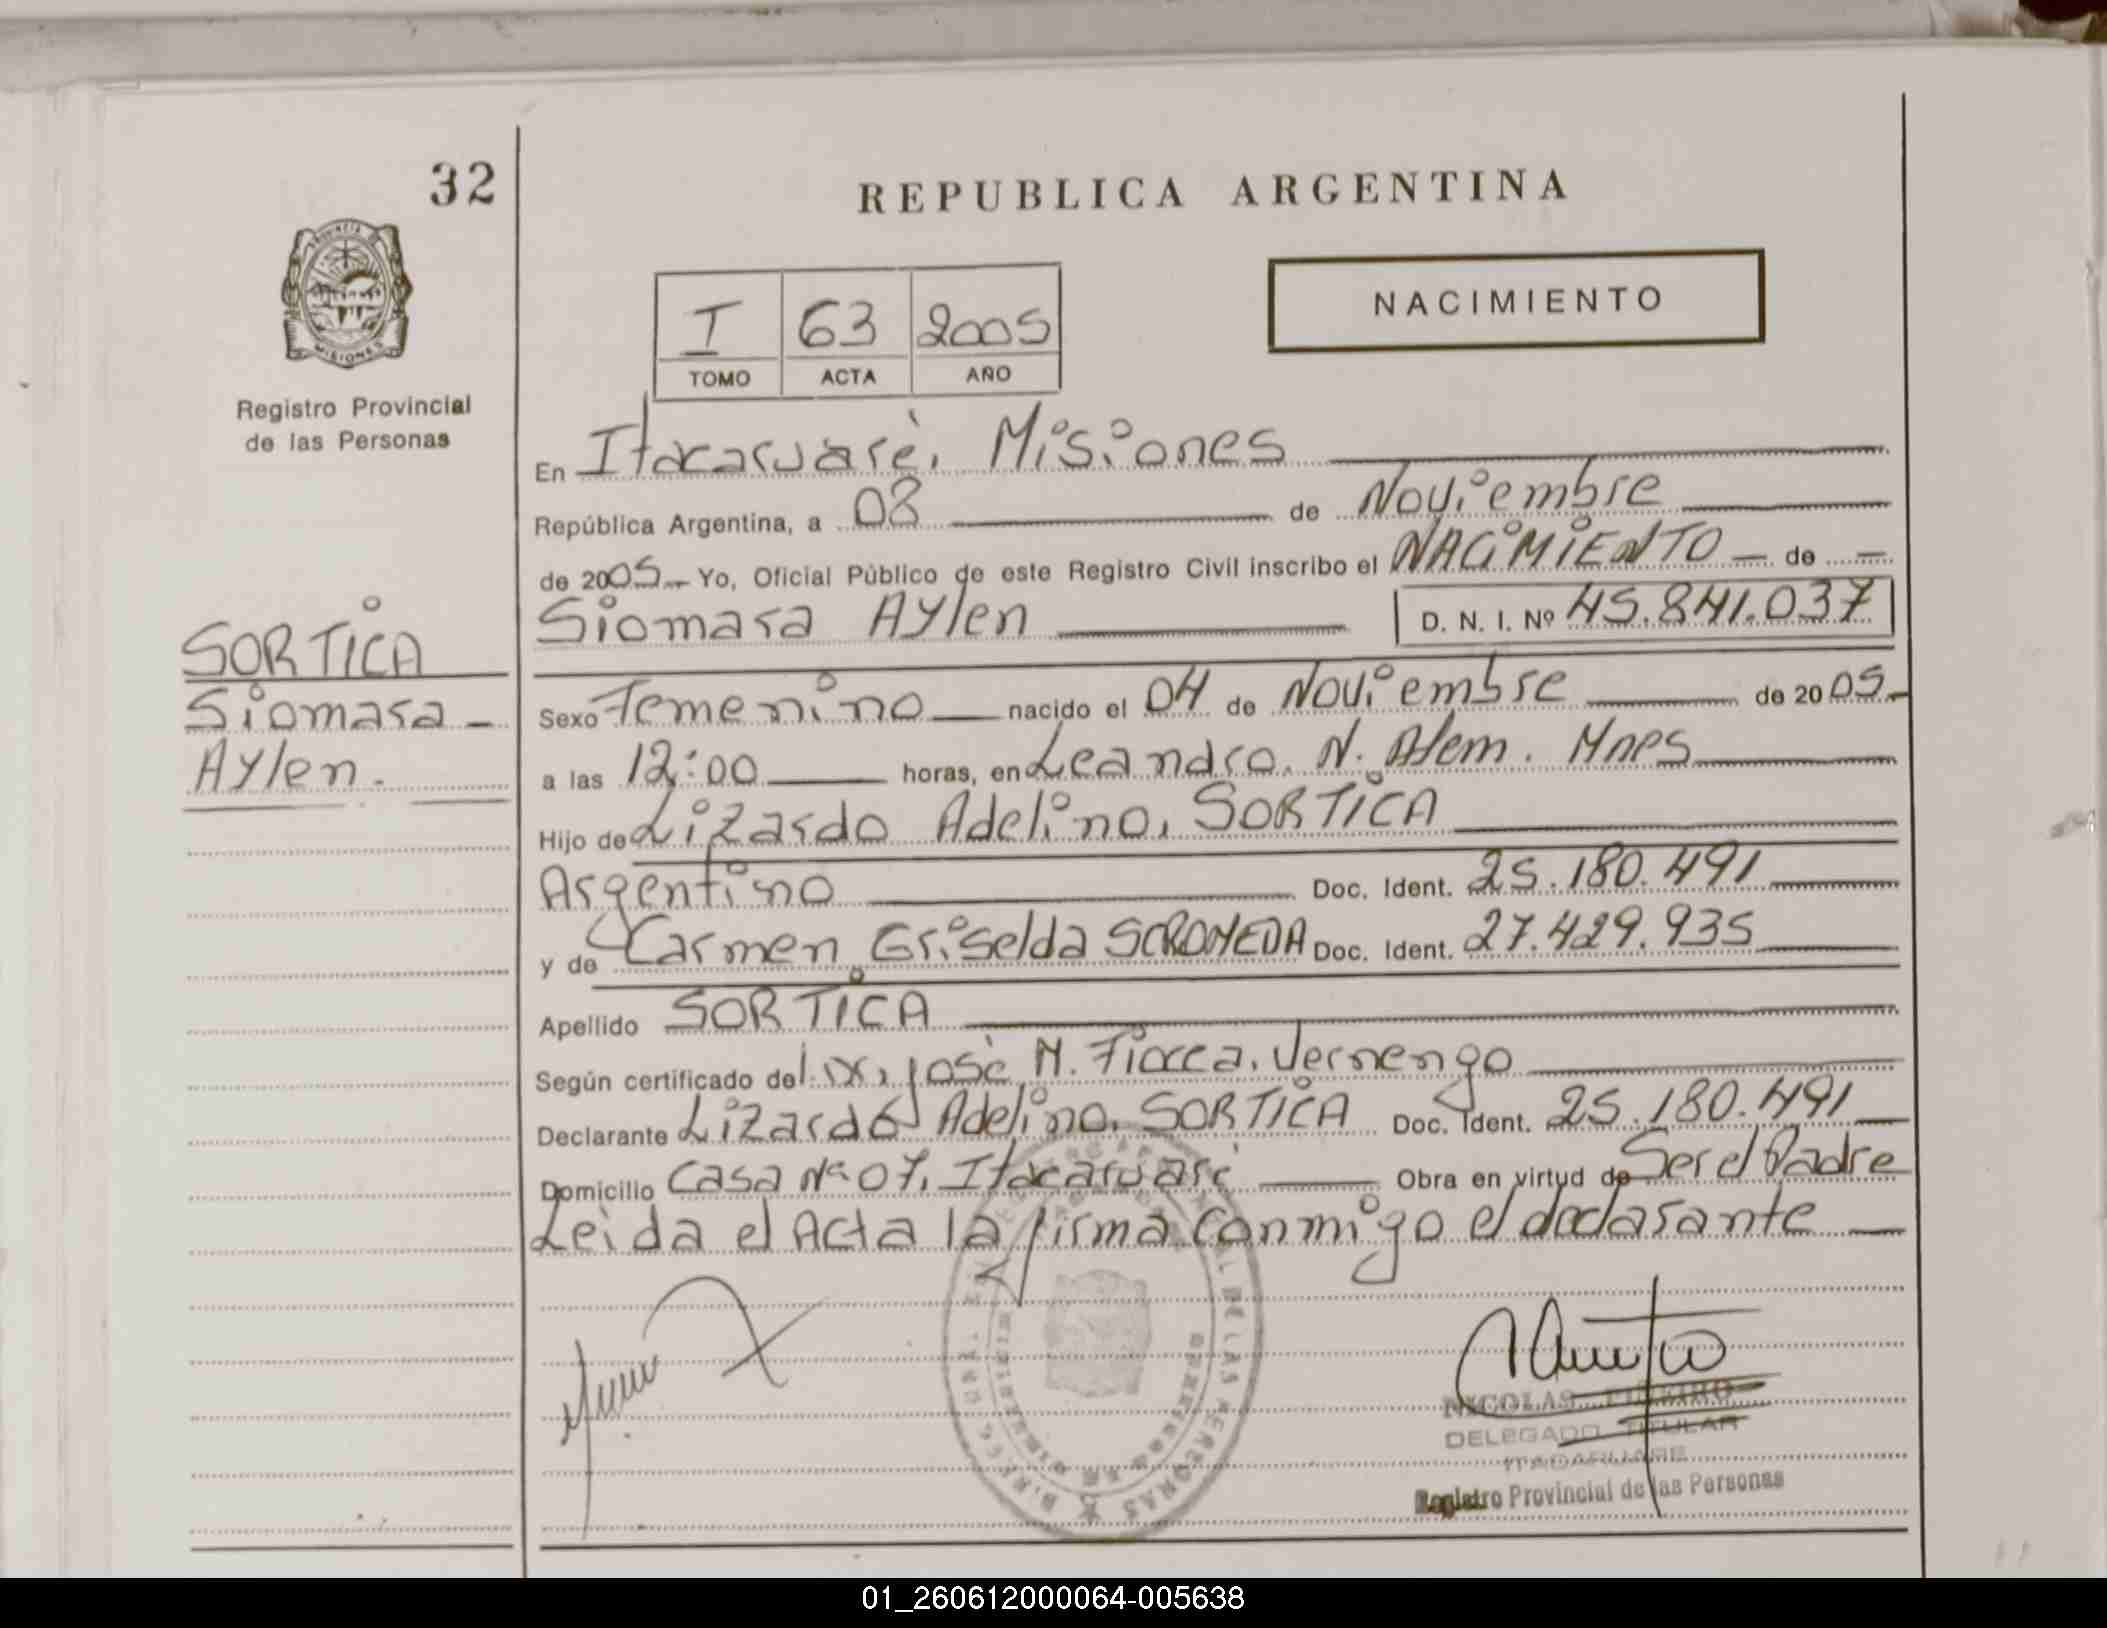 32
REPUBLICA ARGENTINA
NACIMIENTO
I 63 2005
TOMO ACTA AÑO
PROVINCIA DE
MISIONES
Registro Provincial
de las Personas
En Itacaruaré, Misiones
República Argentina, a 08 de Noviembre
de 2005 Yo, Oficial Público de este Registro Civil inscribo el NACIMIENTO de
Siomara Aylen D. N. I. Nº 45.841.037
SORTICA
Siomara
Aylen.
Sexo Femenino nacido el 04 de Noviembre de 2005
a las 12:00 horas, en Leandro. N. Alem. Mnes
Hijo de Lizardo Adelino, SORTICA
Argentino Doc. Ident. 25.180.491
y de Carmen Griselda Doc. Ident. 27.429.935
Apellido SORTICA
Según certificado del Dr, José M. Fiocca, Vernengo
Declarante Lizardo Adelino, SORTICA Doc. Ident. 25.180.491
Domicilio Casa Nº 07, Itacaruaré Obra en virtud de Ser el Padre
Leida el Acta la firma conmigo el declarante
NICOLAS PIÑEIRO
DELEGADO TITULAR
ITACARUARE
Registro Provincial de las Personas
01_260612000064-005638